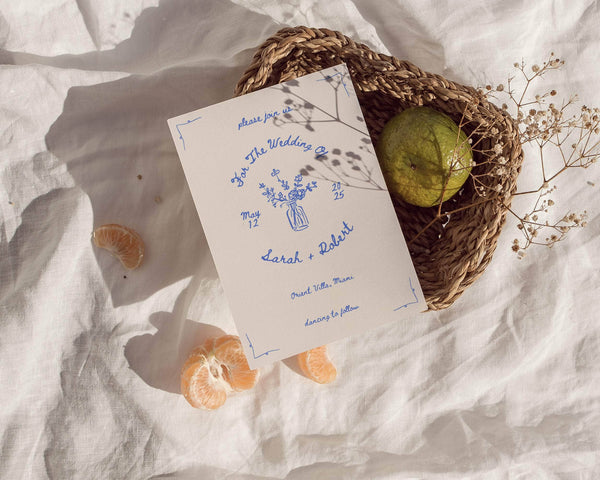 please join us
For The Wedding Of
May 20
12 25
Sarah + Robert
Orient Villa, Miami
dancing to follow